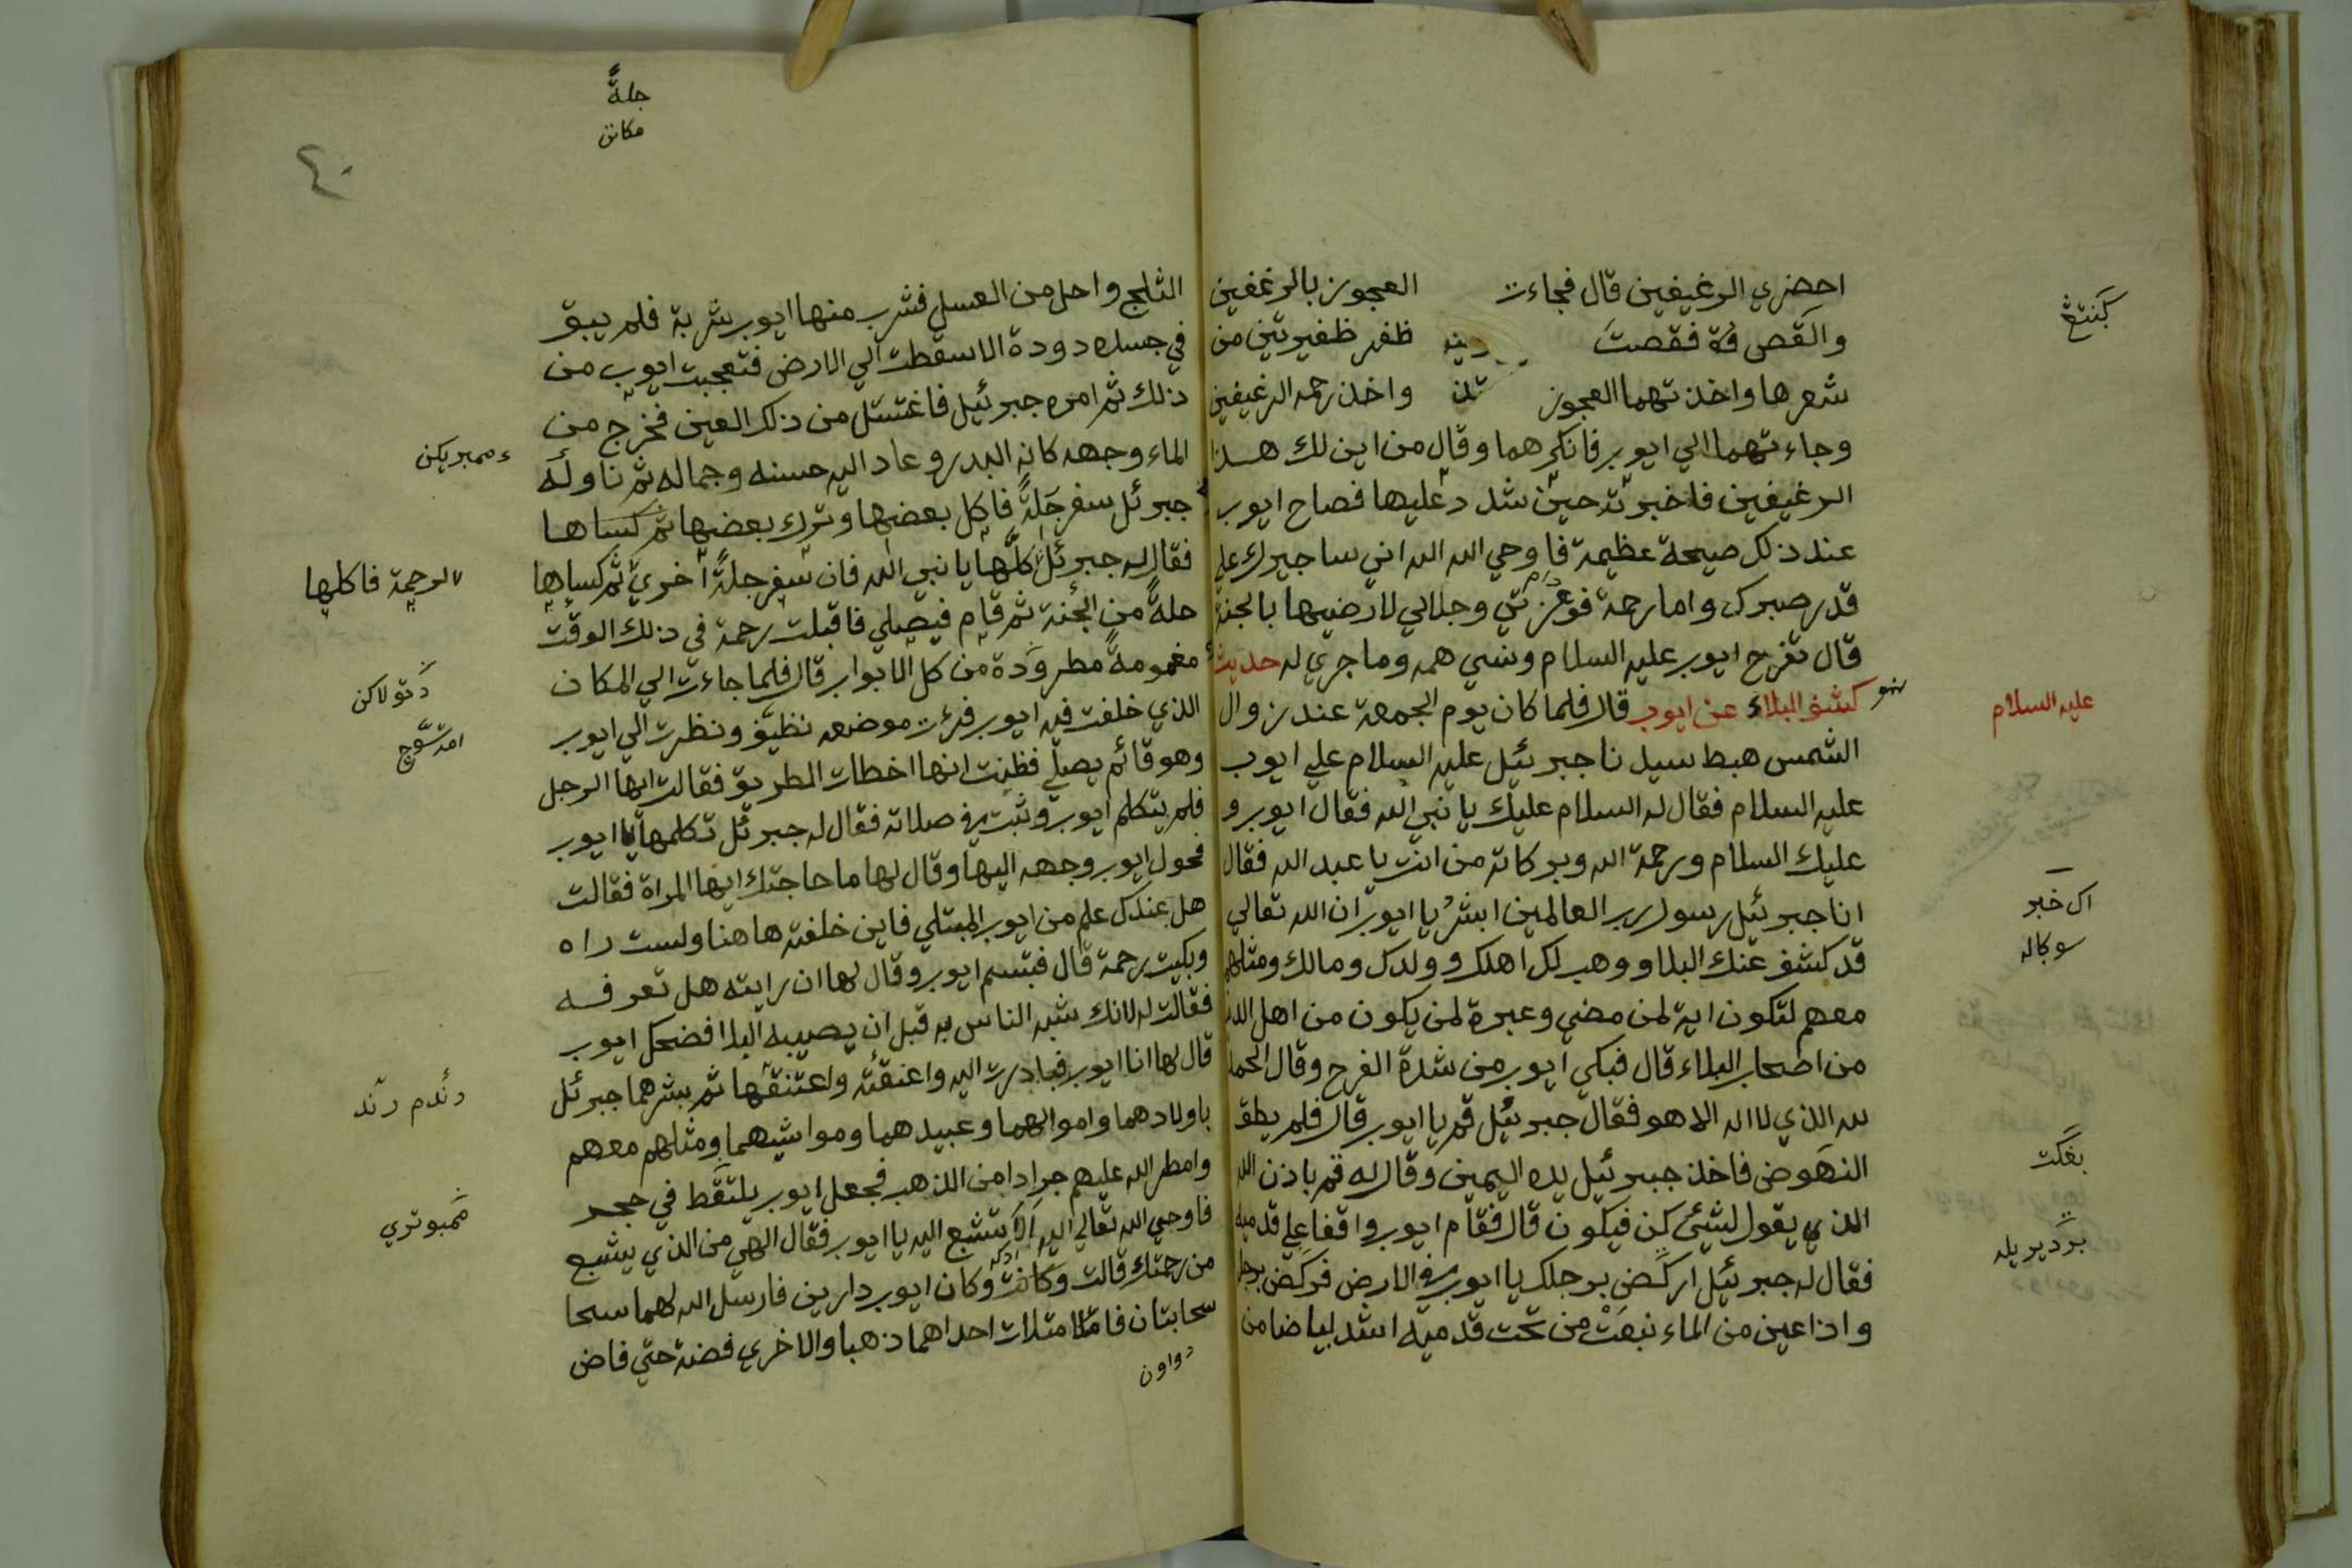 احضري الرغيفين قال فجاءت العجوز بالرغفين
والقصفة فقصت ظفر ظفيرتين من
شعرها واخذتهما العجوز واخذ رحمه الرغيفين
وجاءتهما الي ايوب فانكرهما وقال من اين لك هذا
الرغيفين فاخبرته حين شدد عليها فصاح ايوب
عند ذلك صيحة عظيمة فاوحي الله اليه اني ساجيرك علي
قدر صبرك واما رحمة فوعزتي وجلالي لارضيها بالجنة
قال تفرح ايوب عليه السلام ونسي همه وما جري له حديث
كشف البلاء عن ايوب قال فلما كان يوم الجمعة عند زوال
عليه السلام
الشمس هبط سيدنا جبرئيل عليه السلام علي ايوب
عليه السلام فقال له السلام عليك يا نبي الله فقال ايوب و
عليك السلام ورحمة الله وبركاته من انت يا عبد الله فقال
انا جبرئيل رسول رب العالمين ابشر يا ايوب ان الله تعالي
اك خبر
قد كشف عنك البلاو ووهب لك اهلك وولدك ومالك ومثلهم
سوكاله
معهم لتكون اية لمن مضي وعبرة لمن يكون من اهل
من اصحاب البلاء قال فبكي ايوب من شدة الفرح وقال الحمد
لله الذي لا اله الا هو فقال جبرئيل قم يا ايوب قال فلم يطق
النهوض فاخذ جبرئيل يده اليمين وقال له قم باذن الله
بغكت
الذي يقول لشيئ كن فيكون قال فقام ايوب واقفا علي قدميه
فقال له جبرئيل اركض برجلك يا ايوب في الارض فركض برجله
واذا عين من الماء نبعت من تحت قدميه اشد بياضا من
حلة
مكانن
٤٠
الثلج واحل من العسل فشرب منها ايوب شربة فلم يبق
في جسده دودة الا سقطت الي الارض فتعجبت ايوب من
ذلك ثم امره جبرئيل فاغتسل من ذلك العين فخرج من
الماء وجهه كانه البدر وعاد اليه حسنه وجماله ثم ناوله
جبرئل سفرجلة فاكل بعضها وترك بعضها ثم كساها
فقال له جبرئل كلها يا نبي الله فان سفرجلة اخري ثم كساها
لرحمة فاكلها
حلة من الجنة ثم قام فيصلي فاقبلت رحمة في ذلك الوقت
مغمومة مطرودة من كل الابواب قال فلما جاءت الي المكان
دتولاكن
الذي خلفت فيه ايوب فرءت موضعه نظيف ونظرت الي ايوب
وهو قائم يصلي فظنت انها اخطات الطريق فقالت ايها الرجل
فلم يتكلم ايوب وثبت في صلاته فقال له جبرئل تكلمها يا ايوب
فحول ايوب وجهه اليها وقال لها ما حاجتك ايها المراة فقالت
هل عندك علم من ايوب المبتلي فاين خلفته هاهنا ولست راه
وبكيت رحمة قال فتبسم ايوب وقال لها ان رايته هل تعرفه
فقالت له لانك شبه الناس به قبل ان يصيبه البلا فضحك ايوب
قال لها انا ايوب فبادرت اليه واعنقته واعتنقها ثم بشرهما جبرئل
دندم رند
باولادهما واموالهما وعبيدهما ومواشيهما ومثلهم معهم
وامطر الله عليهم جرادا من الذهب فجعل ايوب يلتقط في حجر
فاوحي الله تعالي اليه الا تشبع اليه يا ايوب فقال الهي من الذي يشبع
من رحمتك قالت وكانت وكان ايوب دارين فارسل الله لهما سحا
سحابتان فامتلات احداهما ذهبا والاخري فضة حتي فاض
دواون